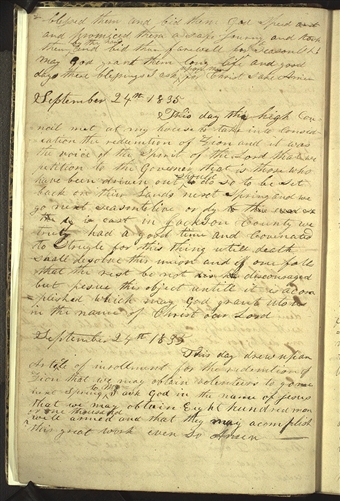 blessed them and bid them God Speed and
and promised them a safe journey and took
them by the hand bid them farewell for a season Oh
may God grant them long life and good
days these blessings I ask for Christ Sake Amen
September 24th 1835
This day the high Cou
ncil met at my house to take into consid
eration the redemtion of Zion and it was
the voice of the Spirit of the Lord that we
petition to the Governer that is those who
have been driven out to do so to be set
back on their Lands next Spring and we
go next season to live or dy
in Jackson County we
truly had a good time and Covinated
to strugle for this thing utill death
shall desolve this union and if one falls
that the rest be not discouraged
but pesue this object untill it is acom
plished which may God grant u
in the name of Christ our Lord
September 24th 1835
This day drew up an
Article of inrollment for the redemtion of
Zion that we may obtain volenteers to go
next Spring I ask God in the name of Jesus
that we may obtain Eight hundred men
or one thousand
well armed and that they may acomplish
this great work even so Amen